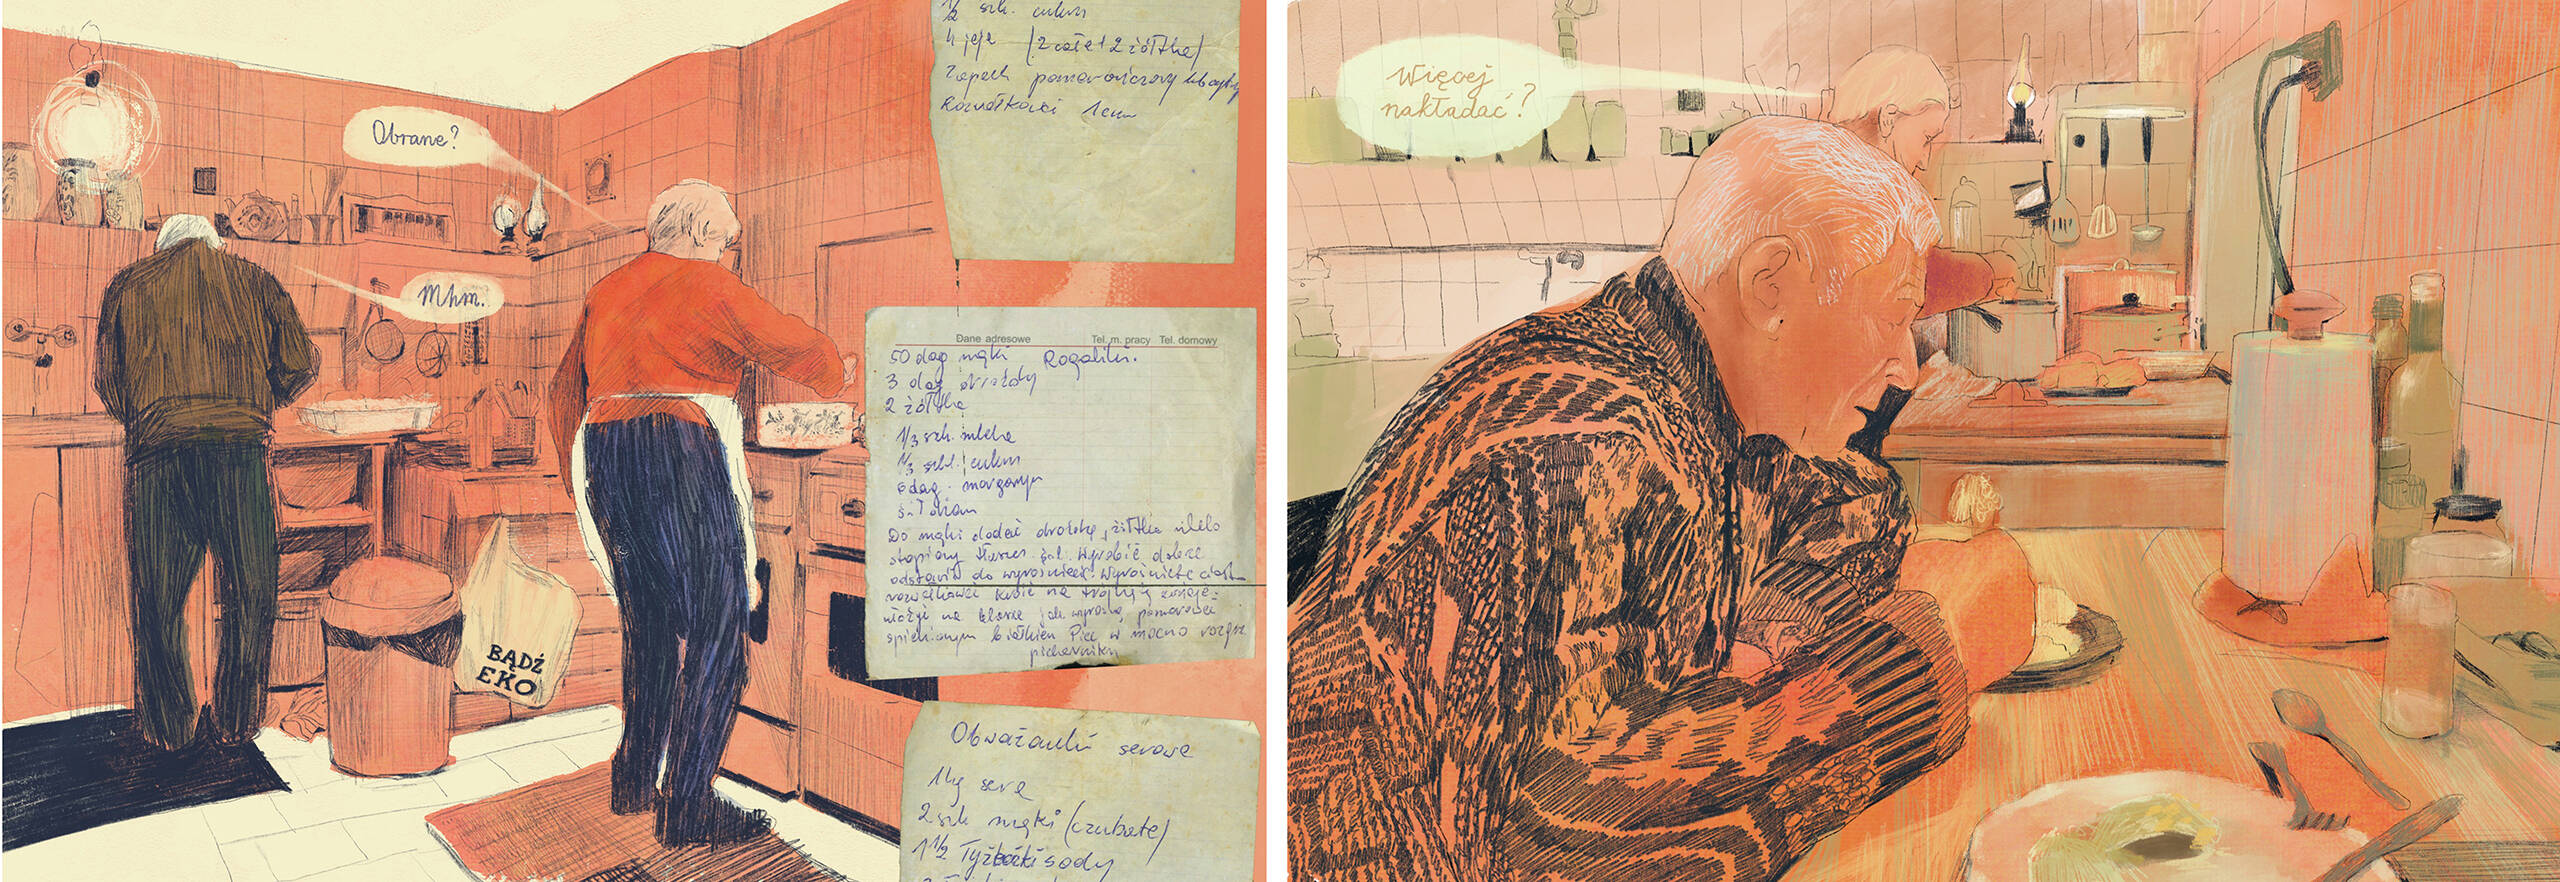 Obrane?
Mhm.
BĄDŹ
EKO
1/2 szk. cukru
4 jaja (2 całe + 2 żółtka)
Zapach pomarańczowy
Rozwałkować 1 cm
Dane adresowe Tel. m. pracy Tel. domowy
50 dag mąki Rogaliki.
3 dag drożdży
2 żółtka
1/3 szk. mleka
1/3 szkl. cukru
6 dag. margaryn
Do mąki dodać drożdże, żółtka mleko
stopiony tłuszcz. Wyrobić dobrze
odstawić do wyrośnięcia. Wyrośnięte ciasto
rozwałkować kroić na trójkąty
włożyć na blachę jak wyrosną, posmarować
spienionym białkiem Piec w mocno
piekarniku
Obważanki serowe
1 kg sera
2 szk mąki (czubate)
1 1/2 Łyżeczki sody
Więcej
nakładać?